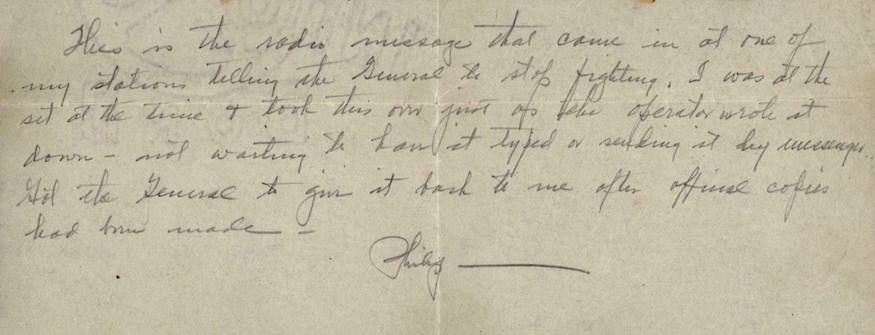 This is the radio message that came in at one of
my stations telling the General to stop fighting. I was at the
set at the time & took this over just as the operator wrote it
down - not waiting to have it typed or sending it by messenger.
Got the General to give it back to me after official copies
had been made -
Philip